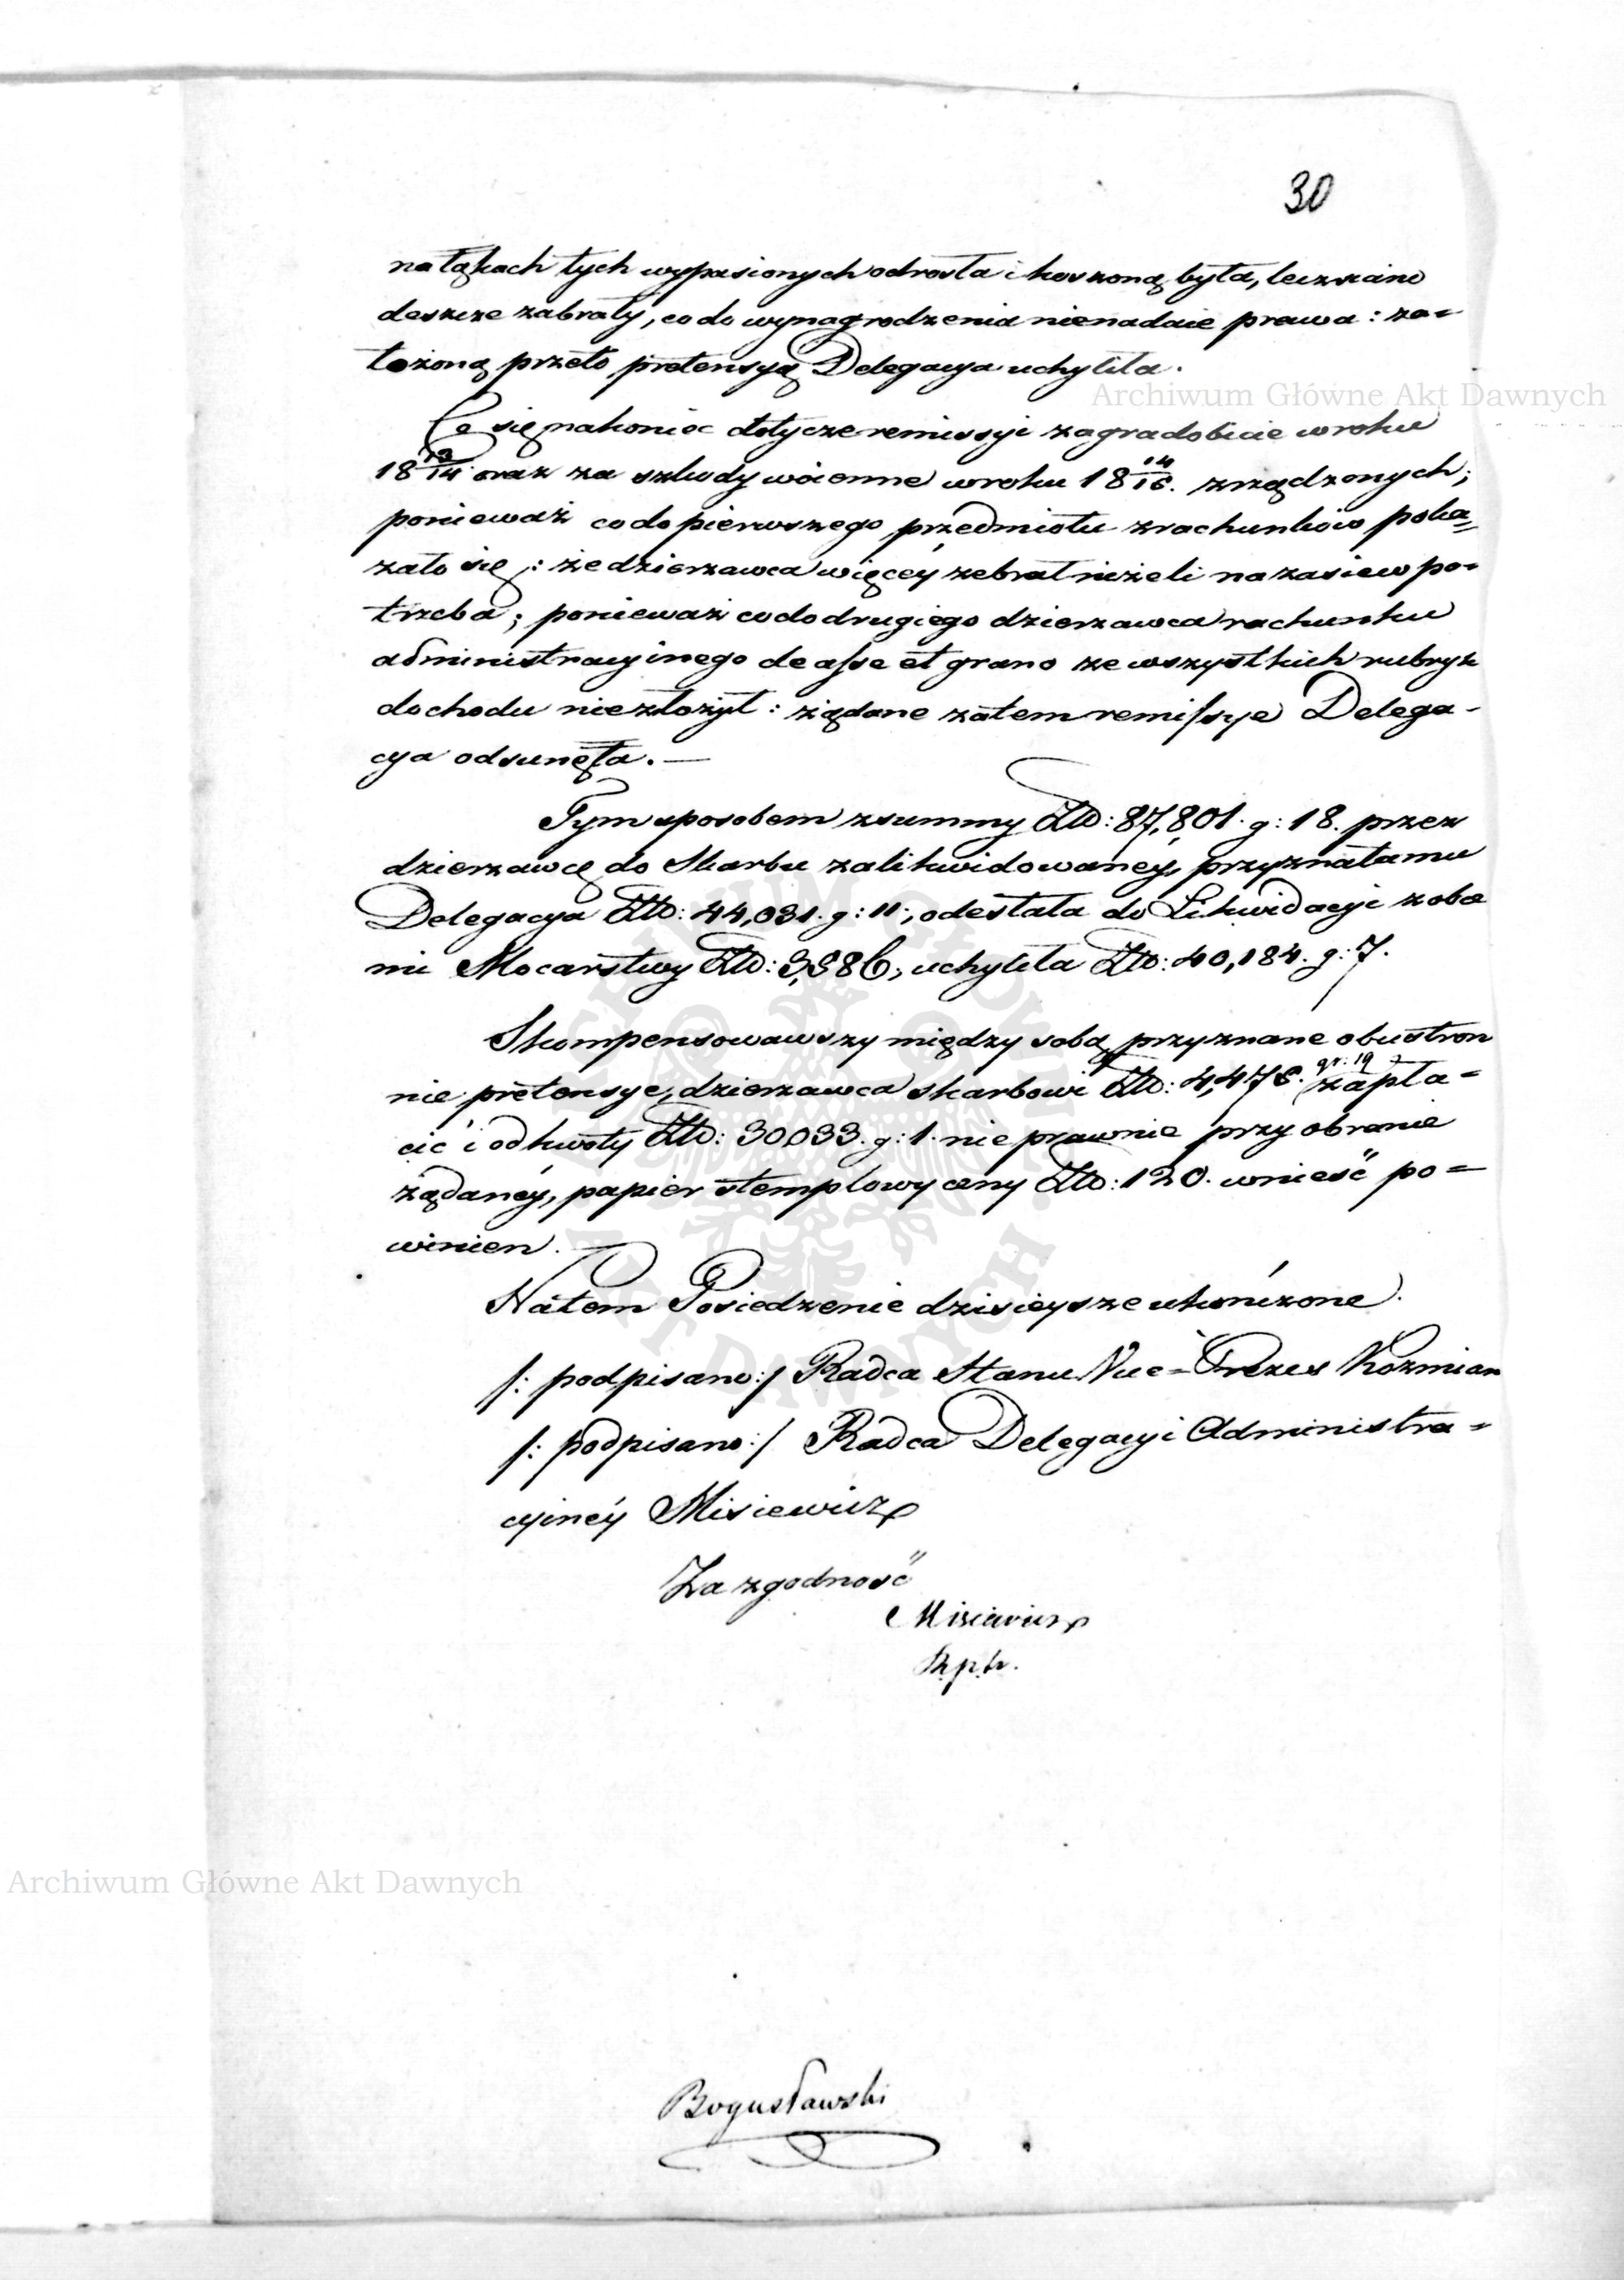 30
na łąkach tych wypasionych odrosła i koszoną była, lecz siano
deszcze zabrały, co do wynagrodzenia nienadaie prawa: za=
łożoną przeto pretensyą Delegacya uchyliła.
Archiwum Główne Akt Dawnych
Co się nakoniec dotycze remissyi za gradobicie w roku
18 13/14 oraz za szkody woienne w roku 18 14/15. zrządzonych;
ponieważ co do pierwszego przedmiotu z rachunków poka=
zało się: że dzierzawca więcéy zebrał niżeli na zasiew po=
trzeba; ponieważ co do drugiego dzierzawca rachunku
administracyinego de asse et grano ze wszystkich rubryk
dochodu niezłożył: żądane zatem remissye Delega-
cya odsunęła. —
Tym sposobem z summy Złto: 87,801. g: 18. przez
dzierzawcę do Skarbu zalikwidowanéy, przyznała mu
Delegacya Złto: 44,031. g: 11., odesłała do Likwidacyi z obce
mi Mocarstwy Złto: 3,586, uchyliła Złto: 40,184. g: 7.
Skompensowawszy między sobą przyznane obustron
nie pretensye, dzierzawca skarbowi Złto: 4,476. gr: 19 zapła=
cić i od kwoty Złto: 30,033. g: 1. nie prawnie przy obronie
żądanéy, papier stemplowy ceny Złto: 120. wnieść po=
winien.
Na tem Posiedzenie dzisieysze ukończone.
/: podpisano:/ Radca Stanu Vice-Prezes Koźmian
/: podpisano:/ Radca Delegacyi Administra=
cyinéy Misiewicz
Za zgodność
Misiewicz
Archiwum Główne Akt Dawnych
Bogusławski